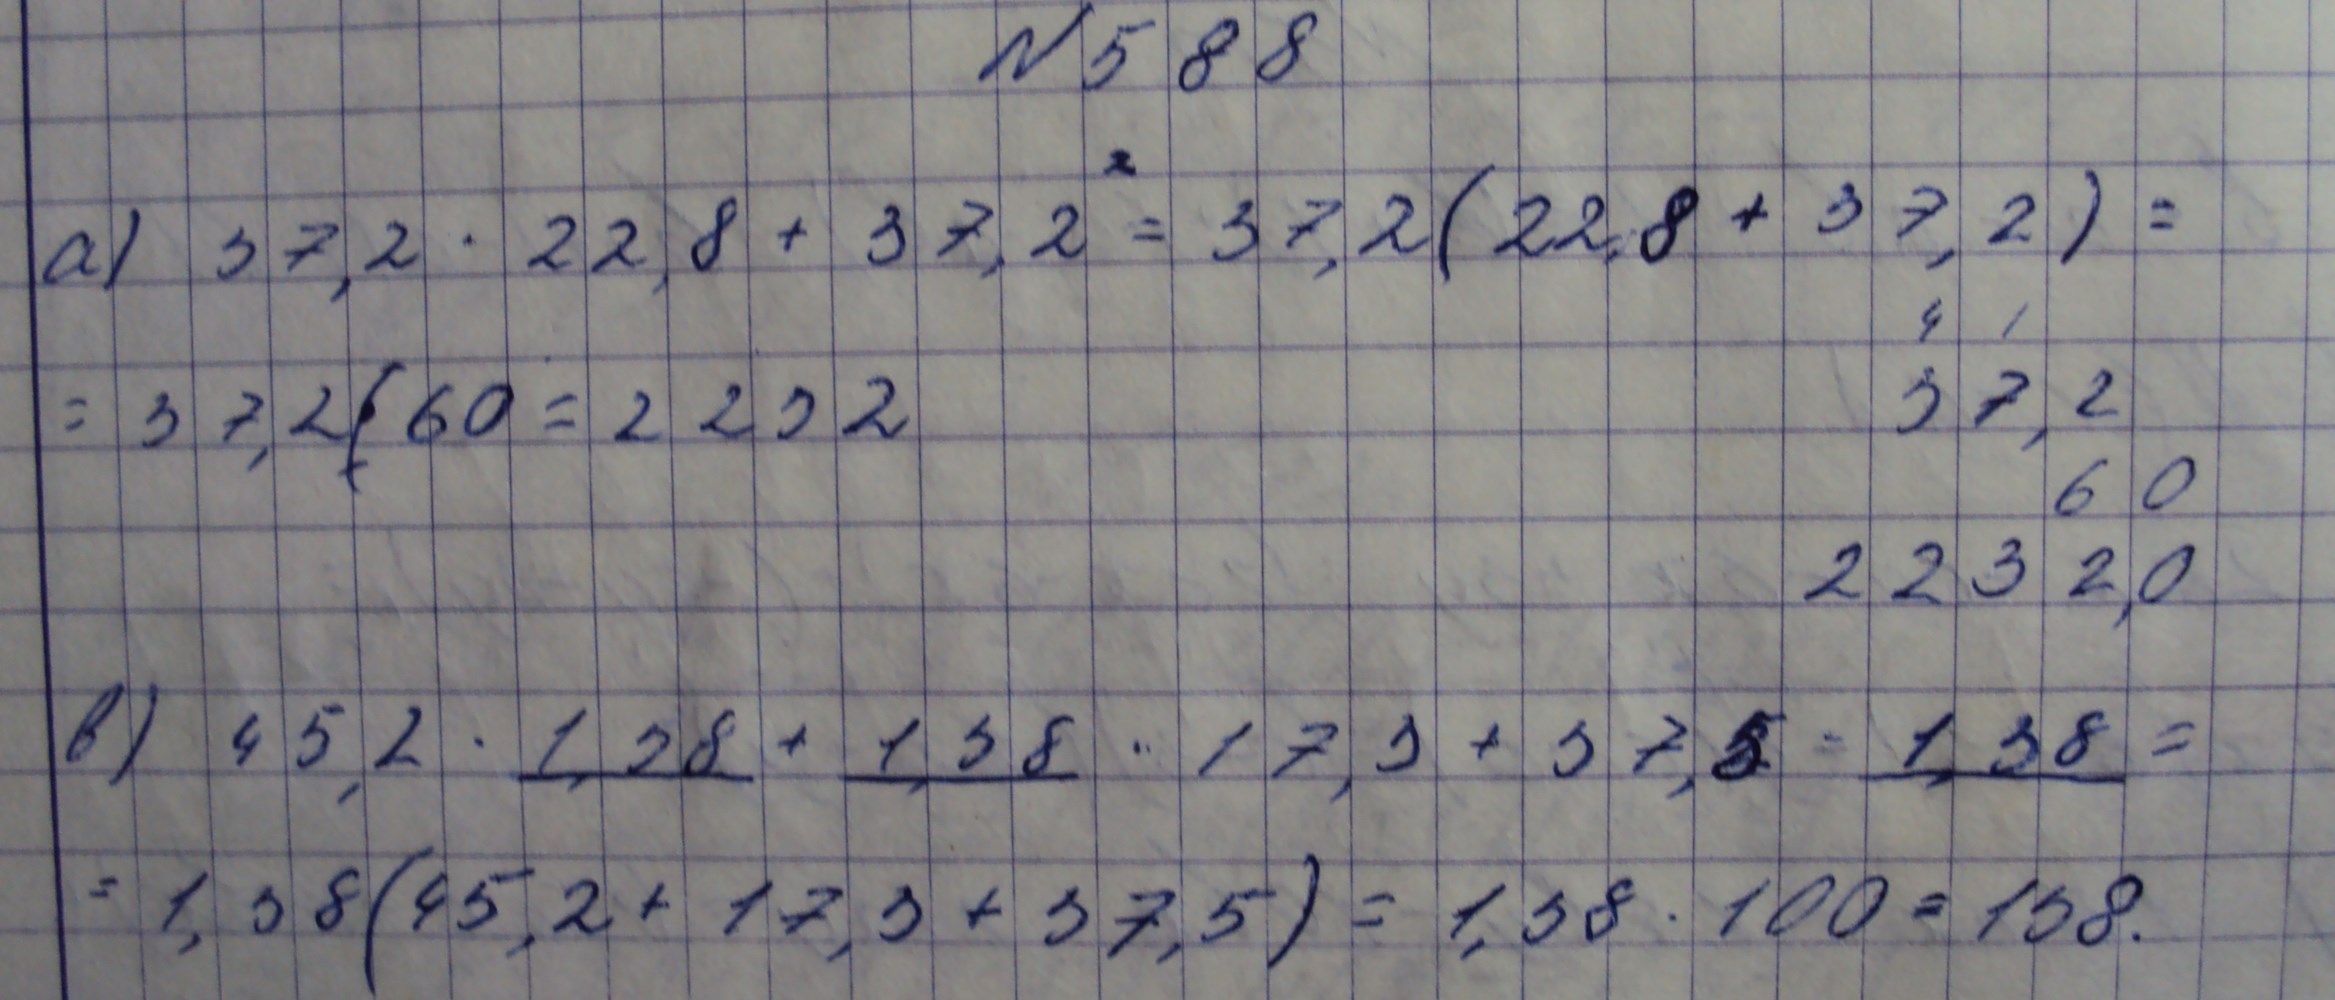 N 588
а) 37,2 · 22,8 + 37,2² = 37,2(22,8 + 37,2) =
= 37,2 · 60 = 2232
4 1
37,2
60
2232,0
в) 45,2 · 1,38 + 1,38 · 17,3 + 37,5 · 1,38 =
= 1,38(45,2 + 17,3 + 37,5) = 1,38 · 100 = 138.